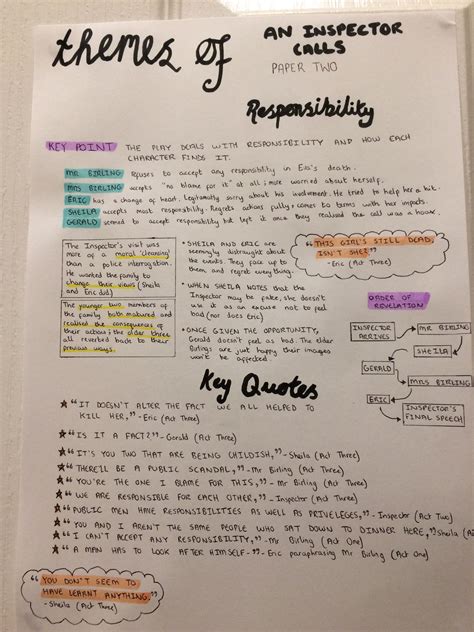 themes of
AN INSPECTOR
CALLS
PAPER TWO
Responsibility
KEY POINT THE PLAY DEALS WITH RESPONSIBILITY AND HOW EACH
CHARACTER FINDS IT.
MR BIRLING Refuses to accept any responsibility in Eva's death.
MRS BIRLING accepts "no blame for it" at all; more worried about herself.
ERIC has a change of heart. Legitimatly sorry about his involvement. He tried to help her a bit.
SHEILA accepts most responsibility. Regrets actions fully + comes to terms with her impacts.
GERALD seemed to accept responsibility but left it once they realised the call was a hoax.
The Inspector's visit was
more of a moral 'cleansing'
than a police interrogation.
He wanted the family to
change their views (Sheila
and Eric did)
The younger two members of
the family both matured and
realised the consequences of
their actions; the older three
all reverted back to their
previous ways.
• SHEILA AND ERIC are
seemingly distraught about
the events. They face up to
them, and regret everything.
• WHEN SHEILA NOTES that the
Inspector may be fake, she doesn't
use it as an excuse not to feel
bad (nor does Eric)
• ONCE GIVEN THE OPPORTUNITY,
Gerald doesn't feel as bad. The elder
Birlings are just happy their images
won't be affected.
"THIS GIRL'S STILL DEAD,
ISN'T SHE?"
- Eric (Act Three)
ORDER OF
REVELATION
INSPECTOR
ARRIVES
MR BIRLING
SHEILA
GERALD
MRS BIRLING
ERIC
INSPECTOR'S
FINAL SPEECH
Key Quotes
"IT DOESN'T ALTER THE FACT WE ALL HELPED TO
KILL HER," - Eric (Act Three)
"IS IT A FACT?" - Gerald (Act Three)
"IT'S YOU TWO THAT ARE BEING CHILDISH," - Sheila (Act Three)
"THERE'LL BE A PUBLIC SCANDAL," - Mr Birling (Act Three)
"YOU'RE THE ONE I BLAME FOR THIS," - Mr Birling (Act Three)
"WE ARE RESPONSIBLE FOR EACH OTHER," - Inspector (Act Three)
"PUBLIC MEN HAVE RESPONSIBILITIES AS WELL AS PRIVELEGES," - Inspector (Act Two)
"YOU AND I AREN'T THE SAME PEOPLE WHO SAT DOWN TO DINNER HERE," Sheila (Act
"I CAN'T ACCEPT ANY RESPONSIBILITY," - Mr Birling (Act One)
"A MAN HAS TO LOOK AFTER HIMSELF" - Eric paraphrasing Mr Birling (Act One)
"YOU DON'T SEEM TO
HAVE LEARNT ANYTHING,"
- Sheila (Act Three)